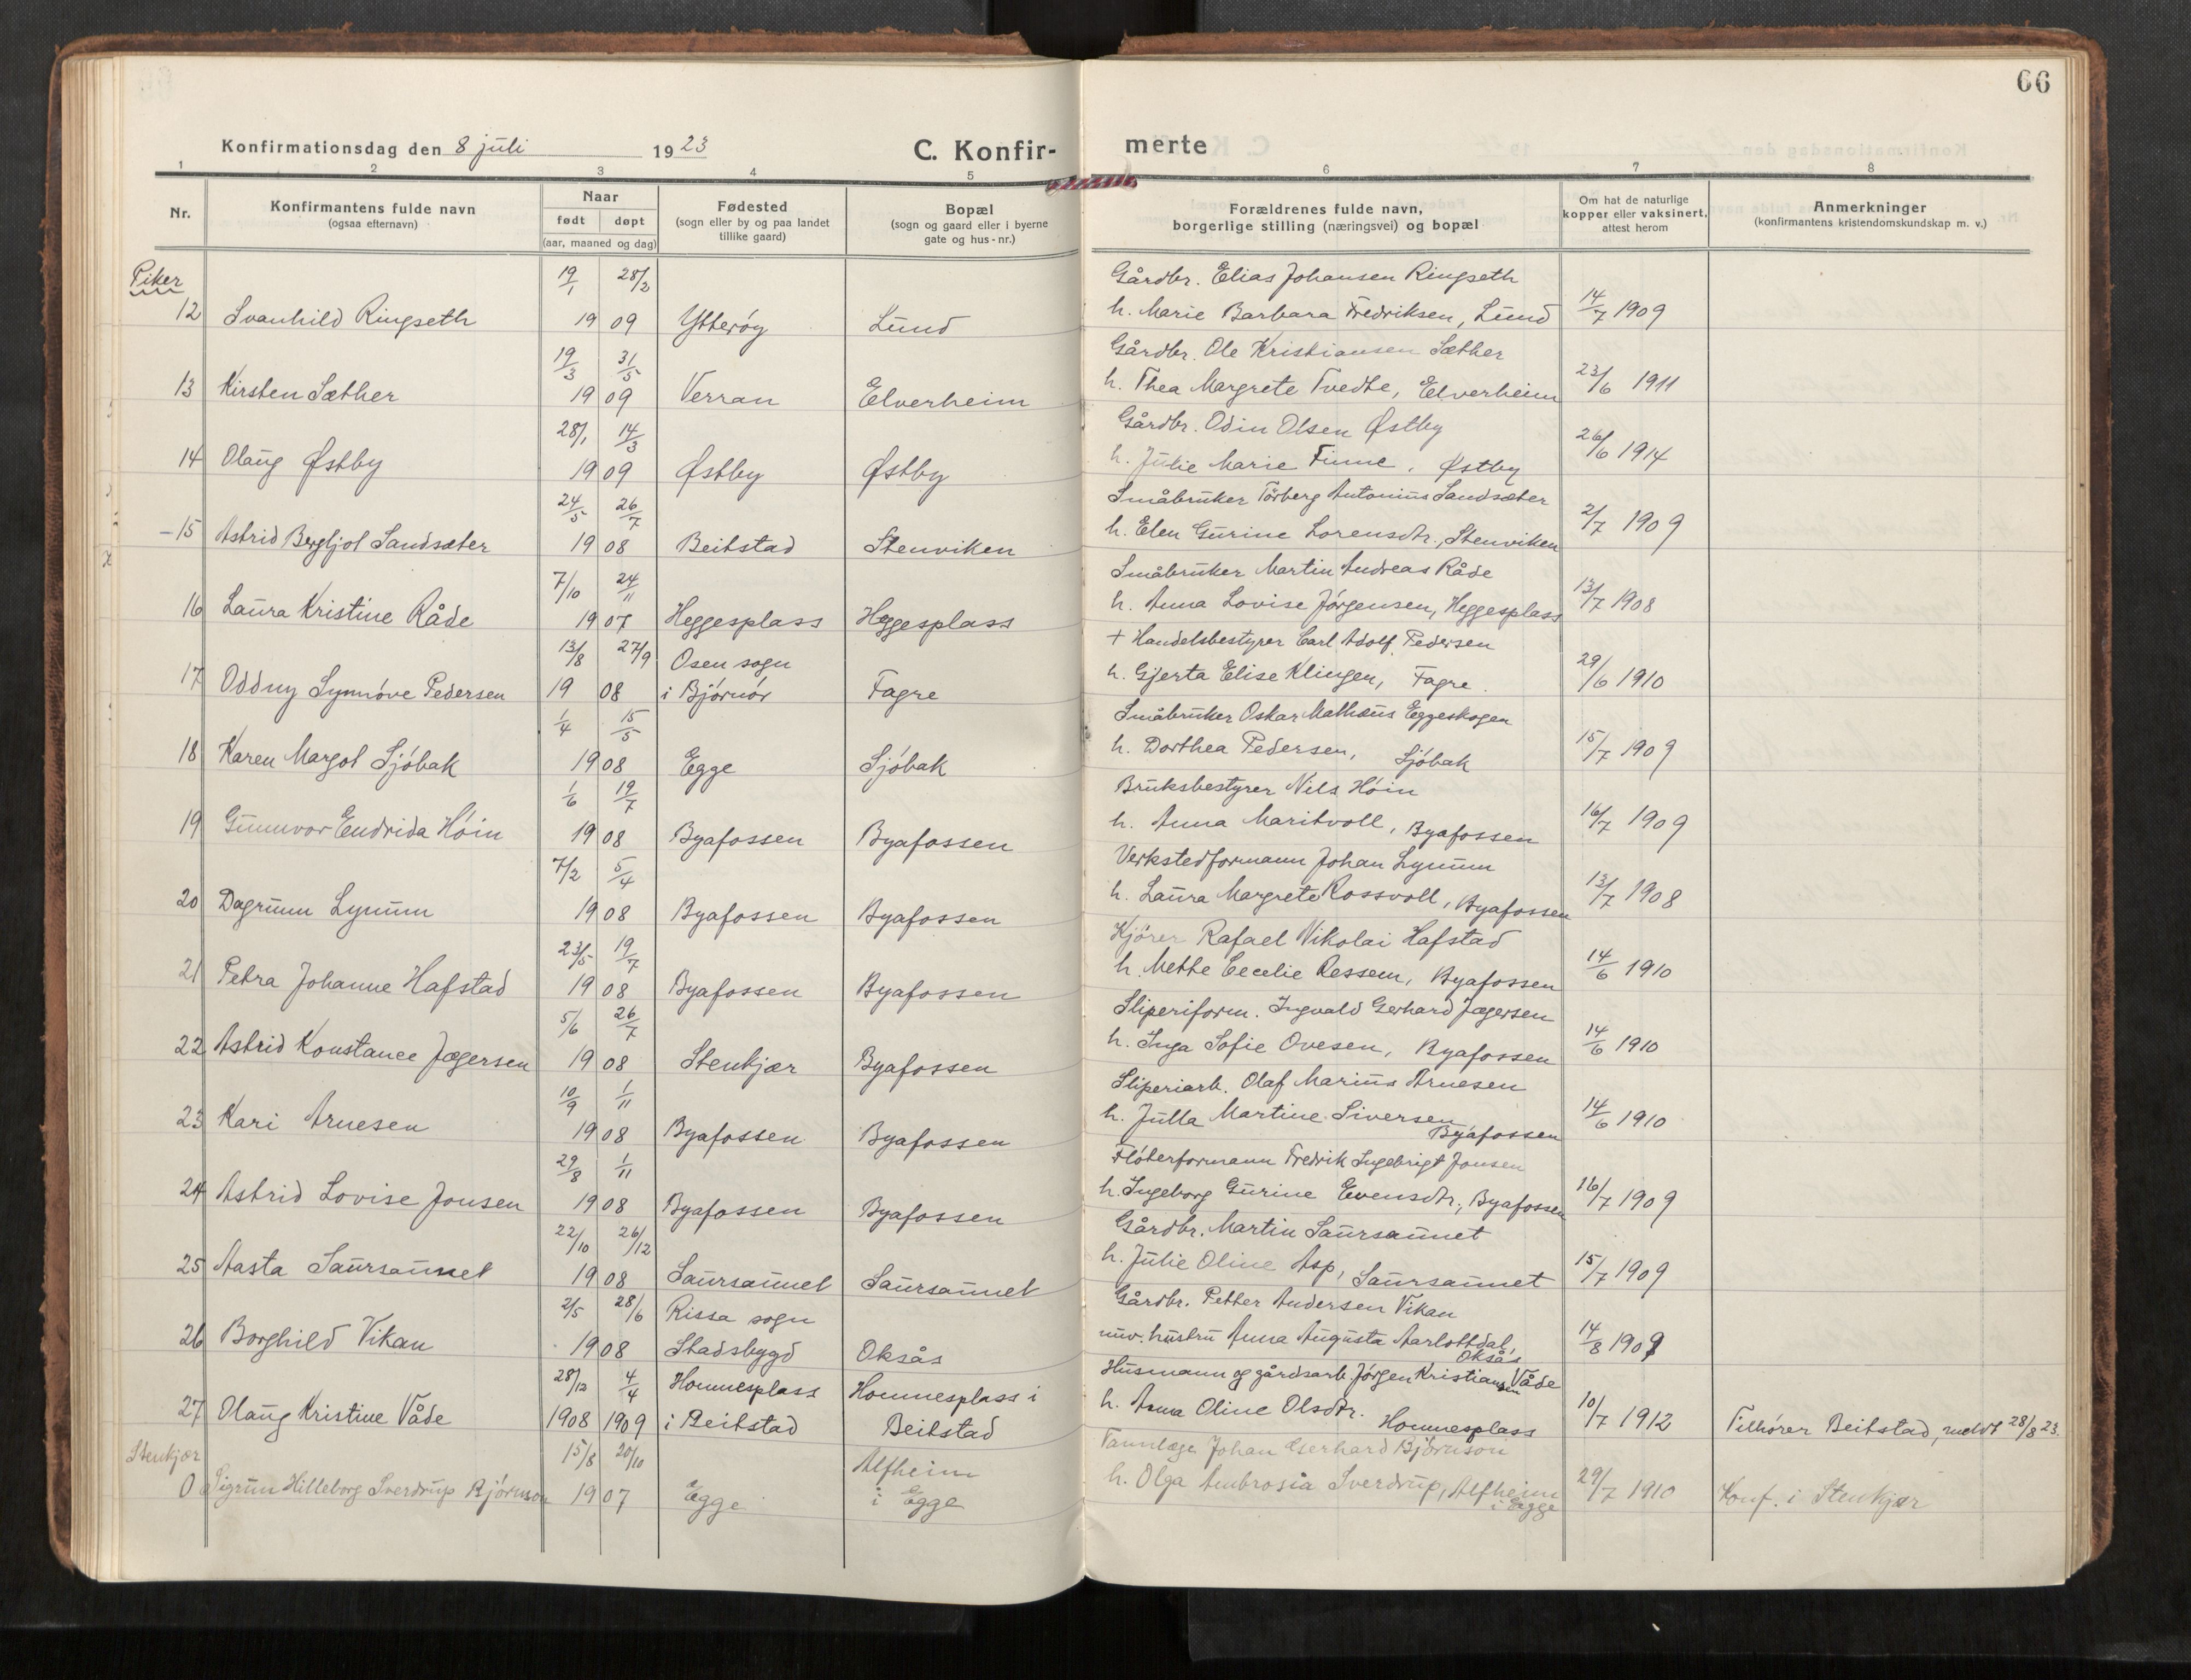 66
Konfirmationsdag den 8 juli 1923
C. Konfir-
merte
1 2 3 4 5 6 7 8
Nr.
Konfirmantens fulde navn
(ogsaa efternavn)
Naar
født døpt
(aar, maaned og dag)
Fødested
(sogn eller by og paa landet
tillike gaard)
Bopæl
(sogn og gaard eller i byerne
gate og hus-nr.)
Forældrenes fulde navn,
borgerlige stilling (næringsvei) og bopæl
Om hat de naturlige
kopper eller vaksinert,
attest herom
Anmerkninger
(konfirmantens kristendomskundskap m. v.)
Piker
19/1 28/2 Gårdbr. Elias Johansen Ringseth
12 Svanhild Ringseth 1909 Ytterøy Lund h. Marie Barbara Fredriksen, Lund 14/7 1909
19/3 31/5 Gårdbr. Ole Kristiansen Sæther
13 Kirsten Sæther 1909 Verran Elverheim h. Thea Margrete Tvedte, Elverheim 23/6 1911
28/1 14/3 Gårdbr. Odin Olsen Østby
14 Olaug Østby 1909 Østby Østby h. Julie Marie Finne, Østby 26/6 1914
24/5 26/7 Småbruker Torberg Antonius Sandsæter
-15 Astrid Bergljot Sandsæter 1908 Beitstad Stenviken h. Elen Gurine Lorensdtr., Stenviken 2/7 1909
7/10 24/11 Småbruker Martin Andreas Råde
16 Laura Kristine Råde 1907 Heggesplass Heggesplass h. Anna Lovise Jørgensen, Heggesplass 13/7 1908
13/8 27/9 Osen sogn + Handelsbestyrer Carl Adolf Pedersen
17 Oddny Synnøve Pedersen 1908 i Bjørnør Fagre h. Gjerta Elise Klingen, Fagre. 29/6 1910
1/4 15/5 Småbruker Oskar Mathæus Eggeskogen
18 Karen Margot Sjøbak 1908 Egge Sjøbak h. Dorthea Pedersen, Sjøbak 15/7 1909
1/6 19/7 Bruksbestyrer Nils Høin
19 Gunnvor Endrida Høin 1908 Byafossen Byafossen h. Anna Maritvoll, Byafossen 16/7 1909
7/2 5/4 Verkstedformann Johan Lynum
20 Dagrunn Lynum 1908 Byafossen Byafossen h. Laura Margrete Rossvoll, Byafossen 13/7 1908
23/5 19/7 Kjører Rafael Nikolai Hafstad
21 Petra Johanne Hafstad 1908 Byafossen Byafossen h. Mette Cecelie Ressem, Byafossen 14/6 1910
5/6 26/7 Sliperiform. Ingvald Gerhard Jægersen
22 Astrid Konstance Jægersen 1908 Stenkjær Byafossen h. Inga Sofie Ovesen, Byafossen 14/6 1910
10/9 1/11 Sliperiarb. Olaf Marius Arnesen
23 Kari Arnesen 1908 Byafossen Byafossen h. Julla Martine Siversen Byafossen 14/6 1910
29/8 1/11 Fløterformann Fredrik Ingebrigt Jonsen
24 Astrid Lovise Jonsen 1908 Byafossen Byafossen h. Ingeborg Gurine Evensdtr., Byafossen 16/7 1909
22/10 26/12 Gårdbr. Martin Saursaunet
25 Aasta Saursaunet 1908 Saursaunet Saursaunet h. Julie Oline Asp, Saursaunet 15/7 1909
2/5 28/6 Rissa sogn Gårdbr. Petter Andersen Vikan
26 Borghild Vikan 1908 Stadsbygd Oksås nuv. hustru Anna Augusta Aarlottdal, Oksås 14/8 1909
28/12 4/4 Hommesplass Hommesplass i Husmann og gårdsarb. Jørgen Kristiansen Våde
27 Olaug Kristine Våde 1908 1909 i Beitstad Beitstad h. Anna Oline Olsdtr. Hommesplass 10/7 1912 Tilhører Beitstad, meldt 28/8 23.
Stenkjær 15/8 20/10 Alfheim Tannlæge Johan Gerhard Bjørnson
0 Sigrun Hilleborg Sverdrup Bjørnson 1907 Egge i Egge h. Olga Ambrosia Sverdrup, Alfheim i Egge 29/7 1910 Konf. i Stenkjær